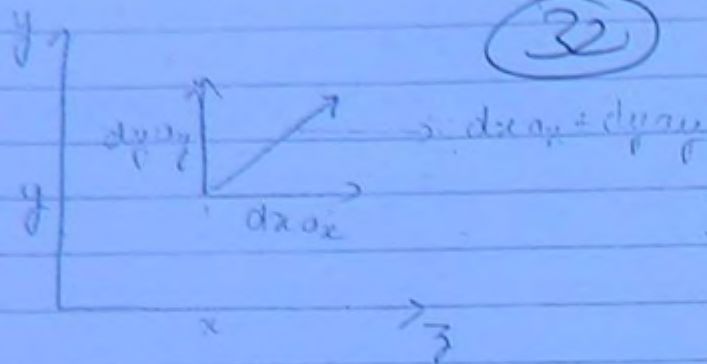 32
y
dy ay
→ dx ax + dy ay
y
dx ax
x
z